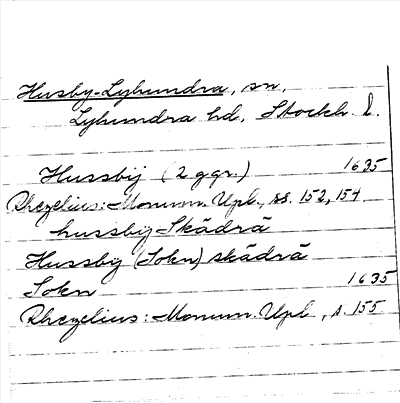 Husby-Lyhundra, sn,
Lyhundra hd, Stockh. l.
Hussbij (2 ggr.) 1635
Rhezelius: Monum. Upl., ss. 152, 154
hussbij Skädrä
Hussbij (Sokn) skädrä
Sokn 1635
Rhezelius: Monum. Upl., s. 155